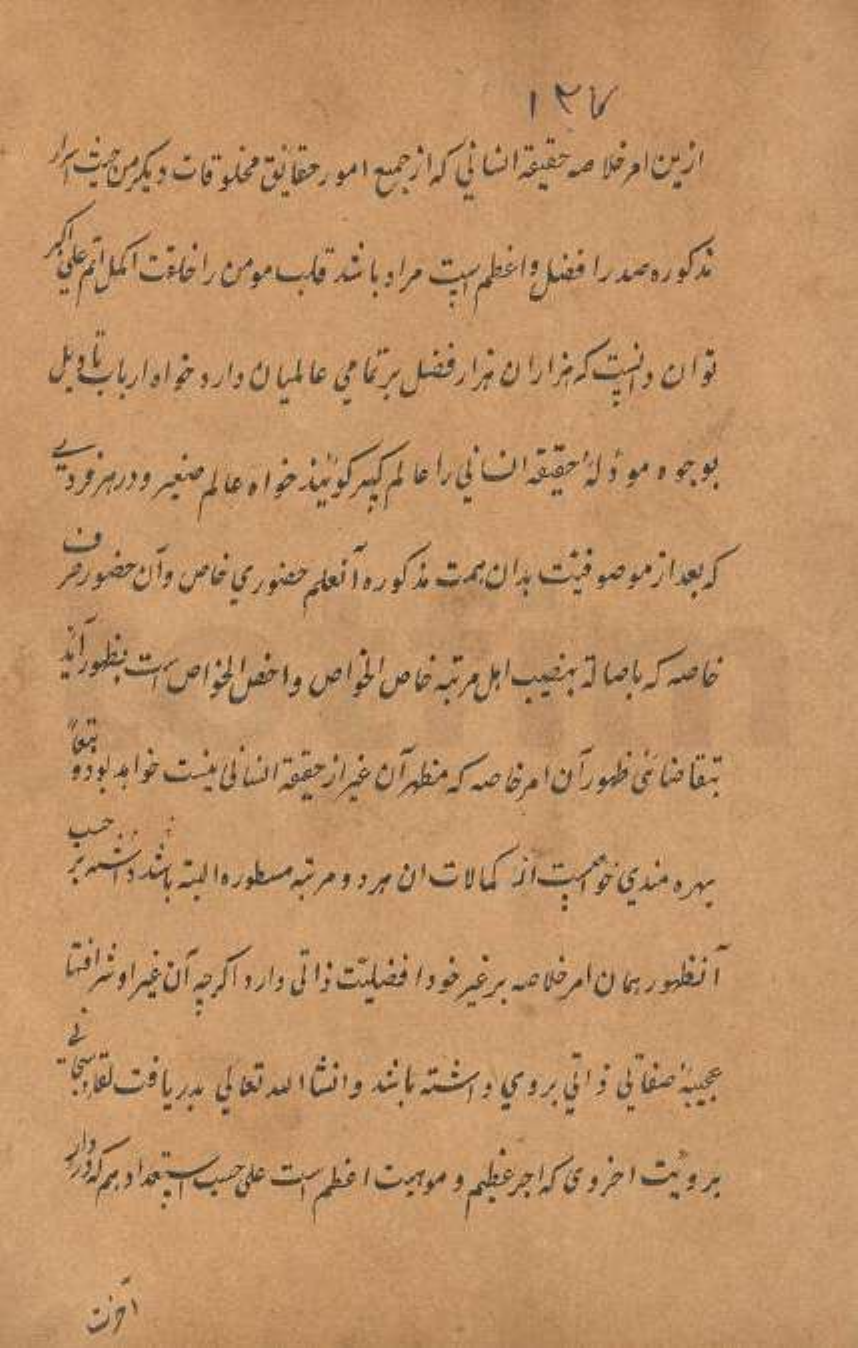 ازین امر خلاصه حقیقة انسانی که از جمیع امور حقایق مخلوقات دیکر من حیث اسرار
مذکوره صدر افضل و اعظم است مراد باشد قلب مومن را خلقت اکمل اتم علی اکبر
توان دانست که هزاران هزار فضل بر تمامی عالمیان دارد خواه ارباب تاویل
بوجوه مودلهٔ حقیقة انسانی را عالم کبیر کویند خواه عالم صغیر و در هر فردی
که بعد از موصوفیت بدان همت مذکوره آنعلم حضوری خاص وآن حضور صرف
خاصه که باصالة بنصیب اهل مرتبه خاص الخواص و اخص الخواص است بظهور آید
بتقاضائی ظهور آن امر خاصه که مظهر آن غیر از حقیقة انسانی نیست خواهد بود و بتبعاً
بهره مندی کمالات ان هر دو مرتبه مسطوره البته باشد داشته بر حسب
آنظهور همان امر خلاصه بر غیر خود افضلیت ذاتی دارد اکرچه آن غیر او شرافتها
عجیبهٔ صفاتی ذاتی بروی داشته باشد و انشا الله تعالی بدریافت لقاء سبحانی
برویت اخروی که اجر عظیم و موهبت اعظم است علی حسب استعداد هم که در دار
آخرت